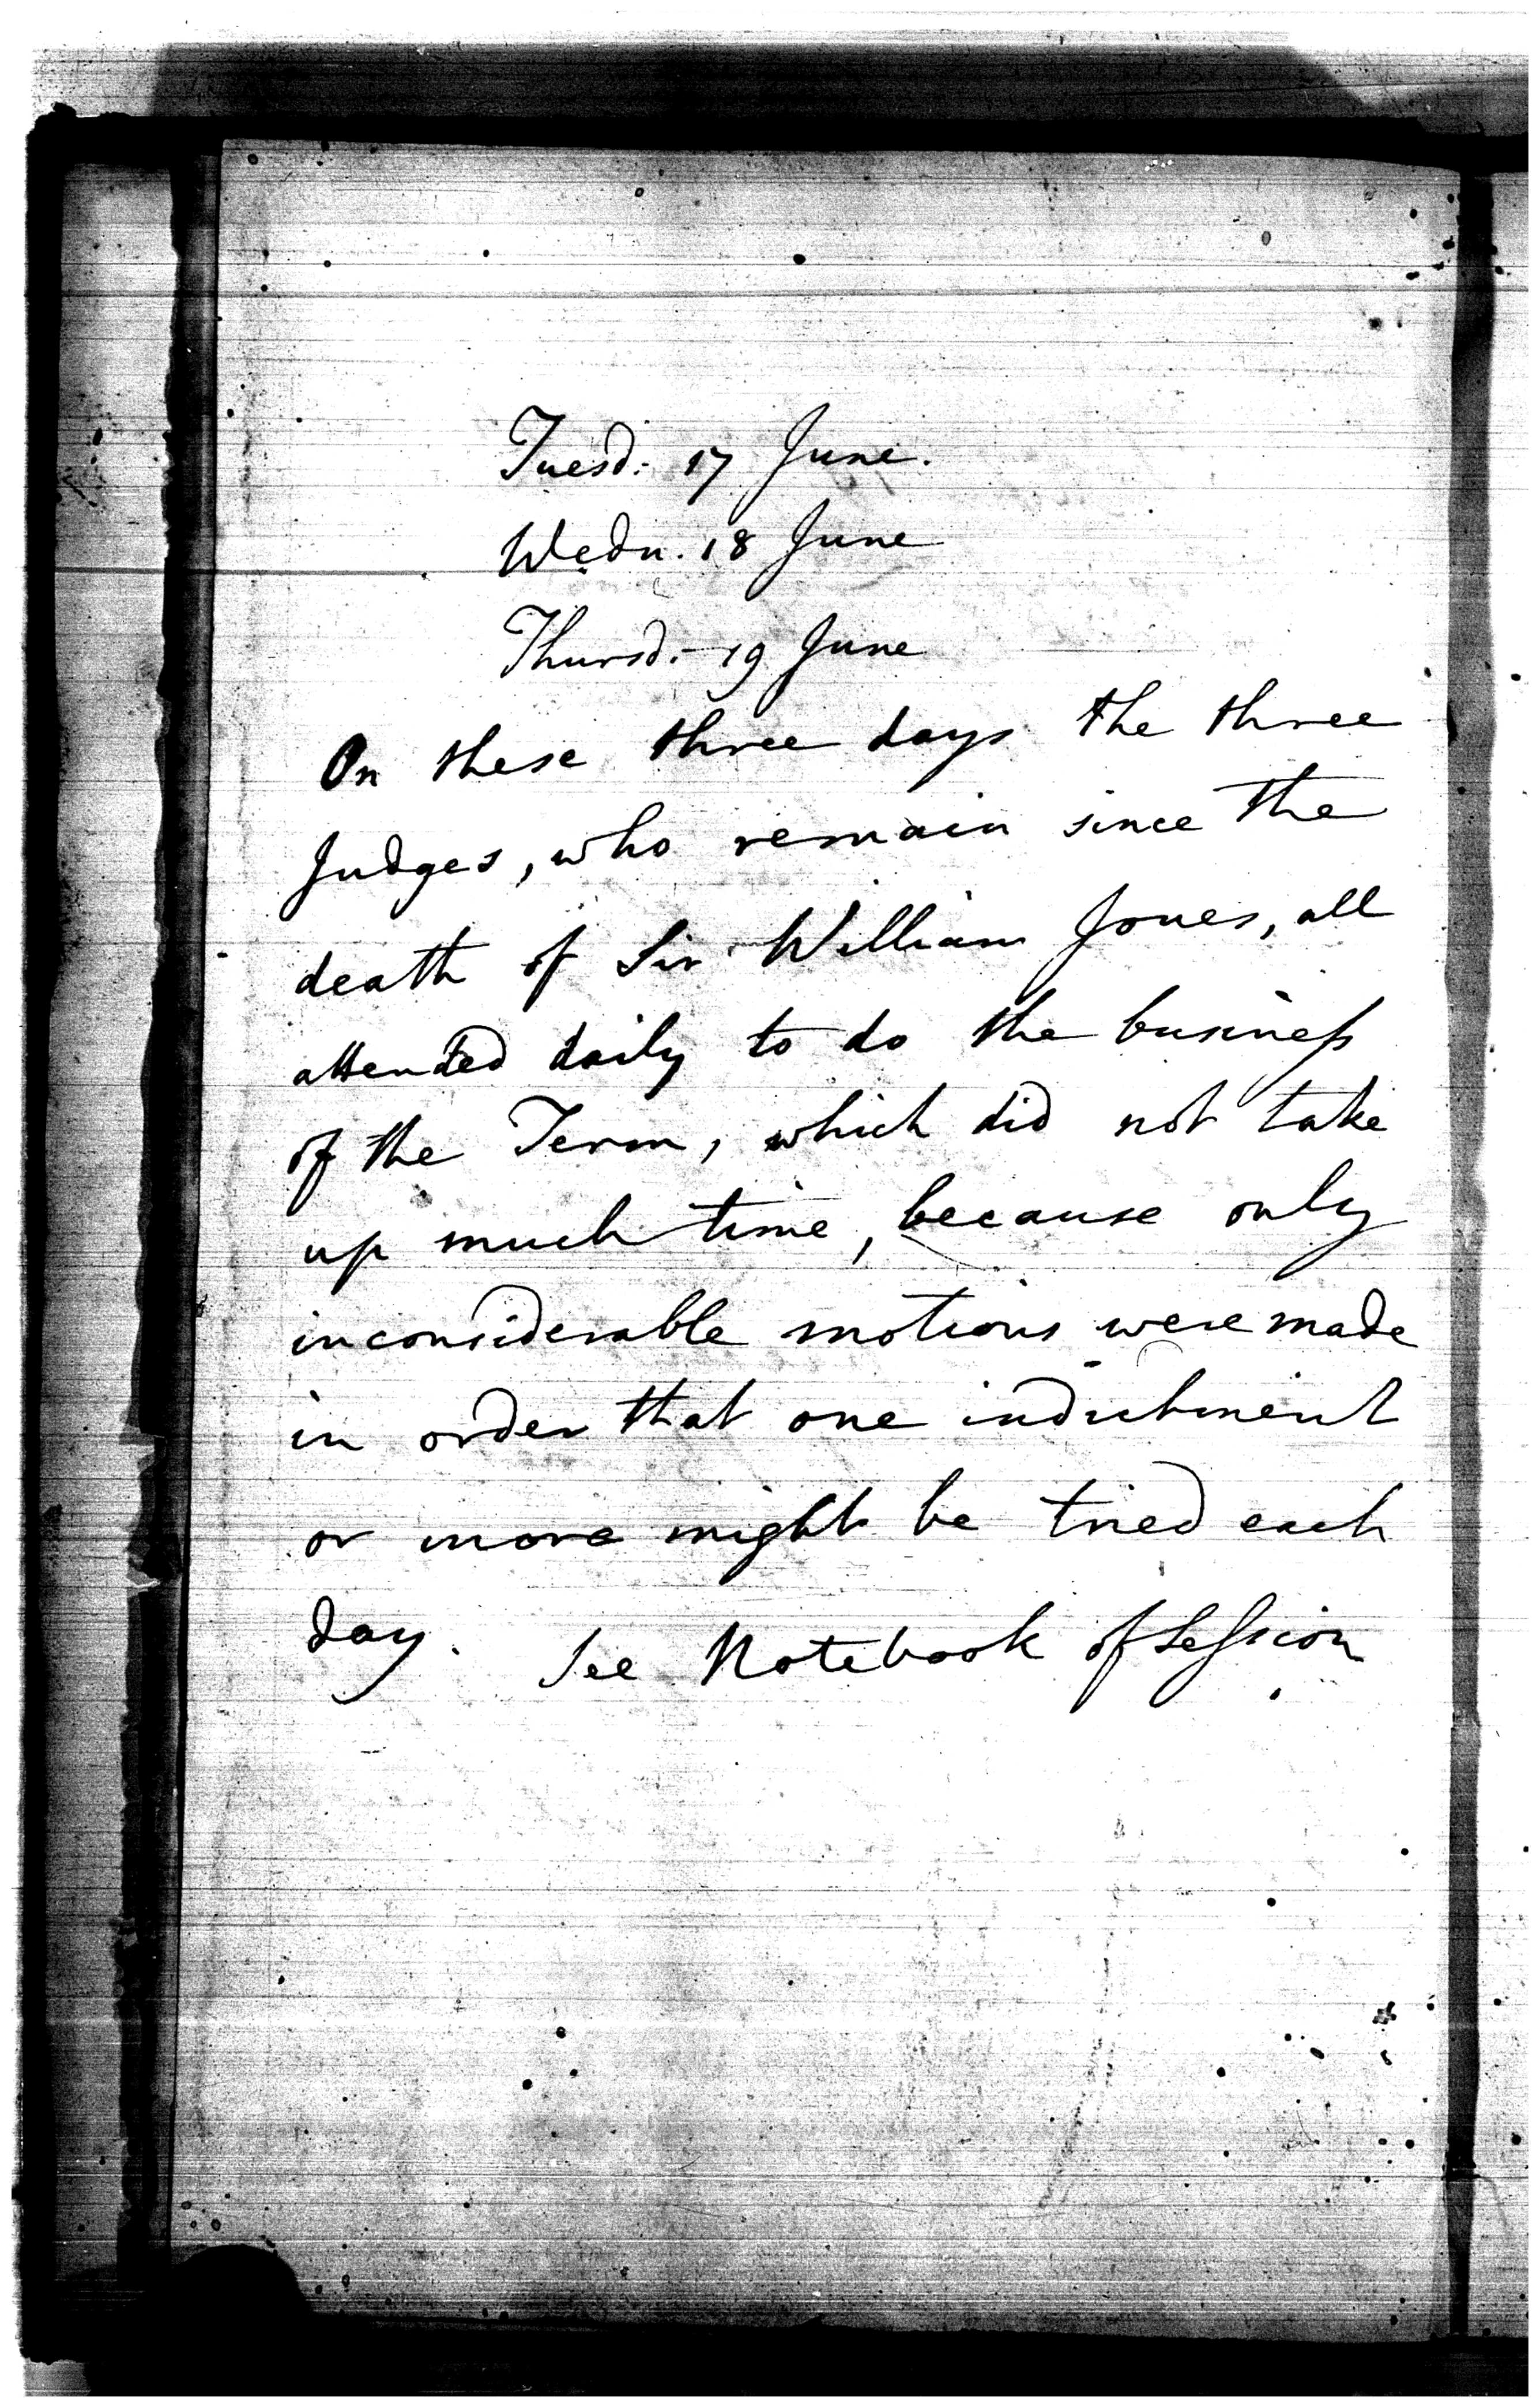 Tuesd: 17 June.
Wedn. 18 June
Thursd: 19 June
On these three days the three
Judges, who remain since the
death of Sir William Jones, all
attended daily to do the busineſs
of the Term, which did not take
up much time, because only
inconsiderable motions were made
in order that one indictment
or more might be tried each
day. See Notebook of Seſsion